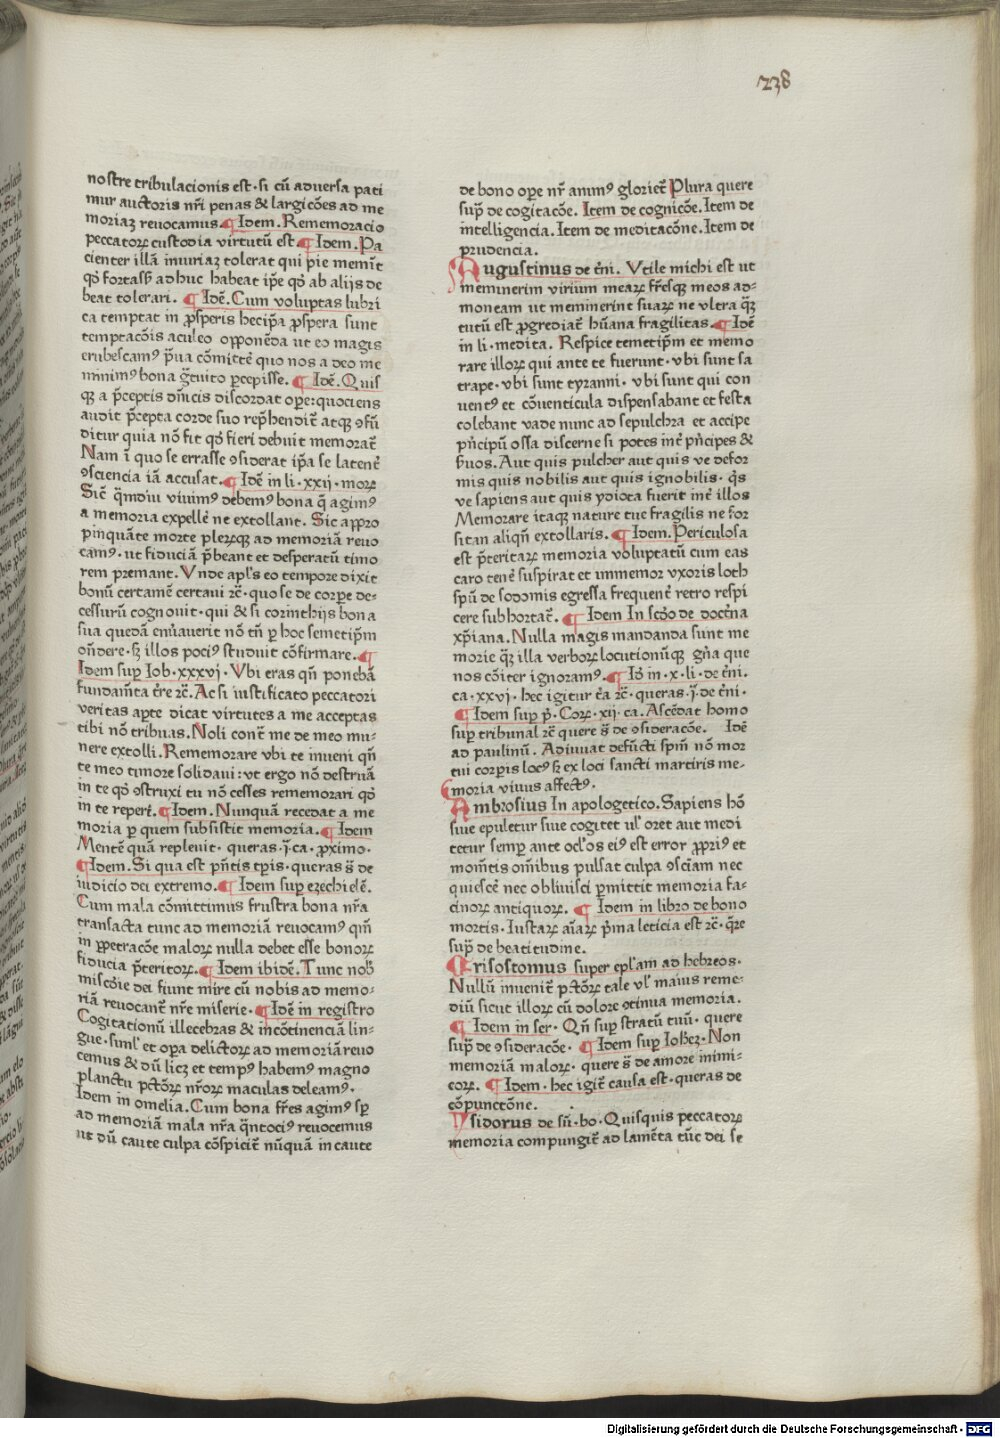 238
nostre tribulacionis est· si cū aduersa pati
mur auctoris nr̄i penas & largicōes ad me
moriaꝫ reuocamus. ¶ Idem. Rememoracio
peccatoꝝ custodia virtutū est ¶ Idem. Pa
cienter illā iniuriaꝫ tolerat qui pie memīt
qd̓ fortass̄ adhuc habeat ip̄e qd̓ ab alijs de
beat tolerari. ¶ Idē. Cum voluptas lubri
ca temptat in ꝓsperis hec ip̄a ꝓspera sunt
temptacōis aculeo opponēda ut eo magis
erubescamꝰ p̄ua cōmittē quo nos a deo me
minimꝰ bona g̃tuito ꝑcepisse. ¶ Idē. Quis
qꝫ a p̄ceptis dn̄icis discordat oꝑe: quociens
audit p̄cepta corde suo rep̄hendit̄ atqꝫ ꝯfū
ditur quia nō fit qd̓ fieri debuit memorat̄
Nam ī quo se errasse ꝯsiderat ip̄a se latent̄
ꝯsciencia iā accusat. ¶ Idē in li· xxij· moꝝ
Sic̄ q̄mdiu viuimꝰ debemꝰ bona q̄ agimꝰ
a memoria expellē ne extollant. Sic appro
pinquāte morte pleꝝqꝫ ad memoriā reuo
camꝰ· ut fiduciā p̄beant et desperatū timo
rem premant. Vnde apl̓s eo tempore dixit
bonū certamē certaui ꝛc̄· quo se de corꝑe de-
cessurū cognouit· qui & si corinthijs bona
sua quedā enūauerit nō tn̄ ꝑ hoc semetip̄m
on̄dere· sꝫ illos pociꝰ studuit cōfirmare. ¶
Idem suꝑ Iob· xxxvi· Vbi eras qn̄ ponebā
fundam̄ta t̄re ꝛc̄. Ac si iustificato peccatori
veritas apte dicat virtutes a me acceptas
tibi nō tribuas. Noli cont̄ me de meo mu-
nere extolli. Rememorare vbi te inueni qn̄
te meo timore solidaui: vt ergo nō destruā
in te qd̓ ꝯstruxi tu nō cesses rememorari qd̓
in te repert̄. ¶ Idem. Nunquā recedat a me
moria ꝑ quem subsistit memoria. ¶ Idem
Mentē quā repleuit· queras· j̄· ca· ꝓximo·
¶ Idem. Si qua est p̄ntis tp̄is· queras s̄ de
iudicio dei extremo. ¶ Idem suꝑ ezechielē.
Cum mala cōmittimus frustra bona nr̄a
transacta tunc ad memoriā reuocamꝰ qm̄
in ꝑpetracōe maloꝝ nulla debet esse bonoꝝ
fiducia p̄teritoꝝ. ¶ Idem ibidē. Tunc nob̓
miscd̓ie dei fiunt mire cū nobis ad memo-
riā reuocant̄ nr̄e miserie. ¶ Idē in registro
Cogitationū illecebras & incōtinenciā lin-
gue· siml̓ et oꝑa delictoꝝ ad memoriā reuo
cemus & dū licꝫ et tempꝰ habemꝰ magno
planctu pctōꝝ nr̄oꝝ maculas deleamꝰ.
Idem in omelia. Cum bona fr̄es agimꝰ sꝑ
ad memoriā mala nr̄a q̄ntociꝰ reuocemus
ut dū caute culpa cōspicit̄ nūquā incaute
de bono oꝑe nr̄ animꝰ gloriet̄ Plura quere
sup̄ de cogitacōe. Item de cognicōe. Item de
intelligencia. Item de meditacōne. Item de
prudencia.
Augustinus de t̄ni. Vtile michi est ut
meminerim virium meaꝝ fr̄esqꝫ meos ad-
moneam ut meminerint suaꝝ ne vltra qꝫ
tutū est ꝓgrediat̄ hūana fragilitas. ¶ Idē
in li· medita. Respice temetip̄m et memo
rare illoꝝ qui ante te fuerunt· vbi sunt sa
trape· vbi sunt tyranni· vbi sunt qui con
uentꝰ et cōuenticula dispensabant et festa
colebant vade nunc ad sepulchra et accipe
pn̄cipū ossa discerne si potes int̄ pn̄cipes &
s̄uos. Aut quis pulcher aut quis ve defor
mis quis nobilis aut quis ignobilis· qͥs
ve sapiens aut quis ydiota fuerit int̄ illos
Memorare itaqꝫ nature tue fragilis ne for
sitan aliqn̄ extollaris. ¶ Idem. Periculosa
est p̄teritaꝝ memoria voluptatū cum eas
caro tenē suspirat et immemor vxoris loth
spū de sodomis egressa frequent̄ retro respi
cere subhortat̄. ¶ Idem In scd̓o de doct̄na
xp̄iana. Nulla magis mandanda sunt me
morie qꝫ illa verboꝝ locutionūqꝫ gn̄a que
nos cōiter ignoramꝰ. ¶ Id̓ in· x· li· de t̄ni.
ca· xxvi· hec igitur t̄a ꝛc̄· queras· j̄· de t̄ni·
¶ Idem suꝑ p̄· Coꝝ· xij· ca. Ascēdat homo
suꝑ tribunal ꝛc̄ quere s̄ de ꝯsideracōe. Idē
ad paulinū. Adiuuat defūcti spm̄ nō mor
tui corꝑis locꝰ sꝫ ex loci sancti martiris me-
moria viuus affectꝰ.
Ambrosius In apologetico. Sapiens hō
siue epuletur siue cogitet ul̓ oret aut medi
tetur semꝑ ante ocl̓os eiꝰ est error ꝓpriꝰ et
momē̄tis om̄ibus pulsat culpa ꝯsciam nec
quiescē nec obliuisci ꝑmittit memoria fa-
cinoꝝ antiquoꝝ. ¶ Idem in libro de bono
mortis· Iustaꝝ aīaꝝ p̄ma leticia est ꝛc̄· q̄re
sup̄ de beatitudine.
Crisostomus super epl̓am ad hebreos·
Nullū inuenit̄ pctōꝝ tale vl̓ maius reme-
diū sicut illoꝝ cū dolore ꝯtinua memoria.
¶ Idem in ser· Qn̄ suꝑ stratū tuū· quere
sup̄ de ꝯsideracōe· ¶ Idem suꝑ Ioheꝫ· Non
memoriā maloꝝ· quere s̄ de amore inimi-
coꝝ. ¶ Idem· hec igit̄ causa est· queras de
cōpunctōne.
Ysidorus de sū· bo· Quisquis peccatoꝝ
memoria compungit̄ ad lamēta tūc dei se
Digitalisierung gefördert durch die Deutsche Forschungsgemeinschaft - DFG